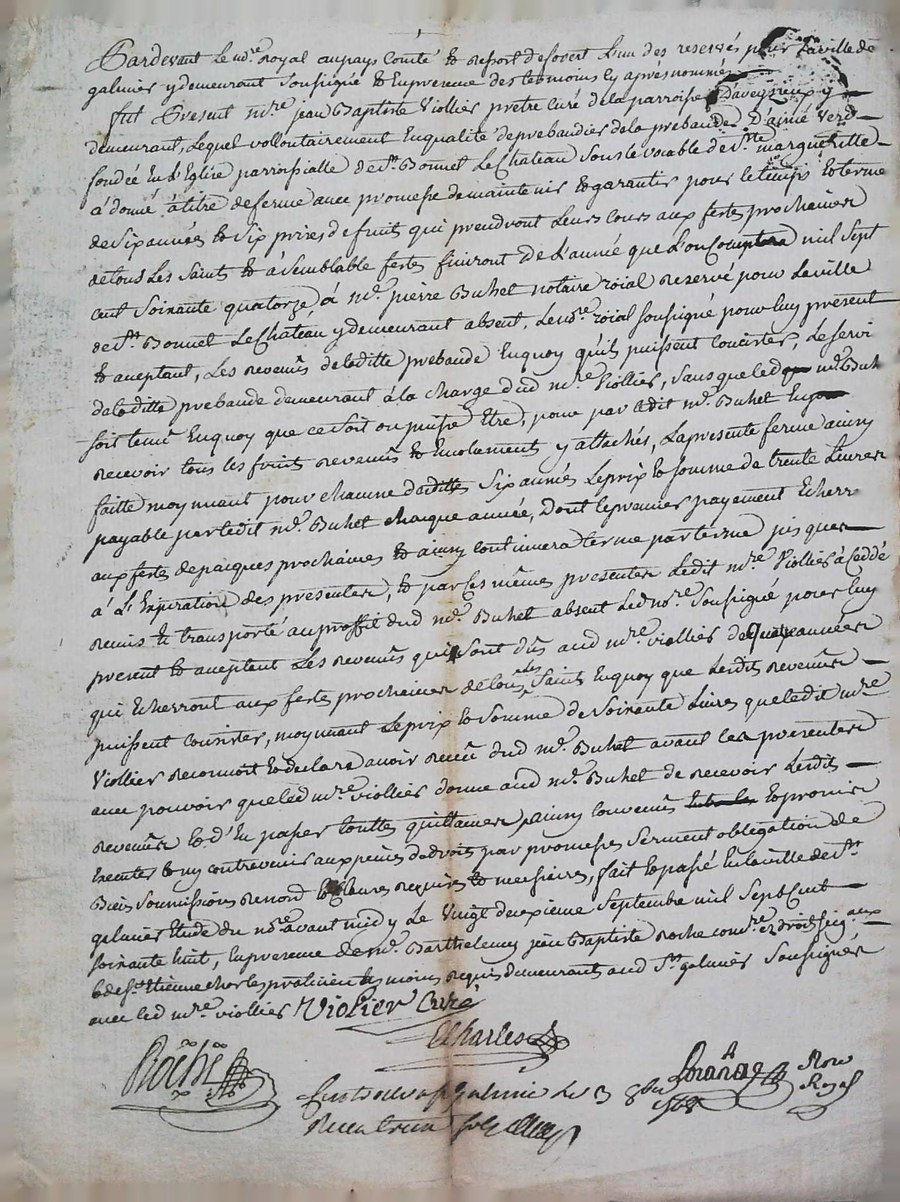 Pardevant Le no.re royal au pays Comté & resort de forest L'un des reservés pour la ville de S.t
galmier y demeurant soussigné & En presence des temoins cy apres nommés
fut Present m.re jean Baptiste Viollier prètre curé de la parroisse D'aveyzieux y
demeurant, Lequel vollontairement En qualité de prebandier de la prebande D'aimé Verd
fondée En L'Eglise parroissialle de S.t Bonnet Le Chateau sous le vocable de S.te margueritte
à donné à titre de ferme avec promesse de maintenir & garantir pour le temps & terme
de six années & six prises de fruits qui prendront Leurs cours aux festes prochaines
de tous Les Saints & à semblable festes finiront de L'année que L'on Comptera mil sept
cent soixante quatorze à m.e pierre Buhet notaire roial reservé pour La ville
de S.t Bonnet Le Chatéau y demeurant absent, Le no.re roial soussigné pour luy present
& aceptant, Les revenus de laditte prebande En quoy qu'ils puissent Concister, Le servi
de laditte prebande demeurant à la charge dud m.re Viollier, sans que led m.e Buh
soit tenu En quoy que ce soit ou puisse Etre, pour par Ledit m.e Buhet
recevoir tous les fruits revenus & Emolument y attachés, La presente ferme ainsy
faitte moyenant pour chacune desdittes six années Le prix & somme de trente Livres
payable par ledit m.e Buhet chaque année, dont le premier payement Echerr
aux festes de paiques prochaines & ainsy continuera terme par terme jusques
à L'Expiration des presentes, & par ces mêmes presentes Ledit m.re Viollier à Ceddé
remis & transporté au proffit dud m.e Buhet absent Led no.re soussigné pour luy
present & aceptant Les revenus qui sont dûs aud m.re viollier de années
qui Echerront aux festes prochaines de tous les Saints En quoy que Lesdits revenus
puissent concister, moyenant Le prix & Somme de soixante Livres que ledit m.re
Viollier reconnoit & declare avoir receu dud m.e Buhet avant Les presentes
avec pouvoir que led m.re viollier donne aud m.e Buhet de recevoir Lesdits
revenus & d'En passer touttes quittances, ainsy convenus & promis
Executer & ny contrevenir aux peines de droits par promesses serment obligation de
Biens soumissions renond & Clauses requises & necessaires, fait & passé En la ville de S.t
galmier Etude du no.re avant midy Le Vingt deuxieme Septembre mil Sept Cent
soixante huit, En presence de m.e Barthelemy jean Baptiste Roche com.re ez droits seig.aux
& de S.r Etienne Charles praticien temoins requis demeurants aud S.t galmier soussignés
avec led m.re viollier Viollier Curé
Charles
Roche
No.re
Royal
galmier Le 3 8bre
1768